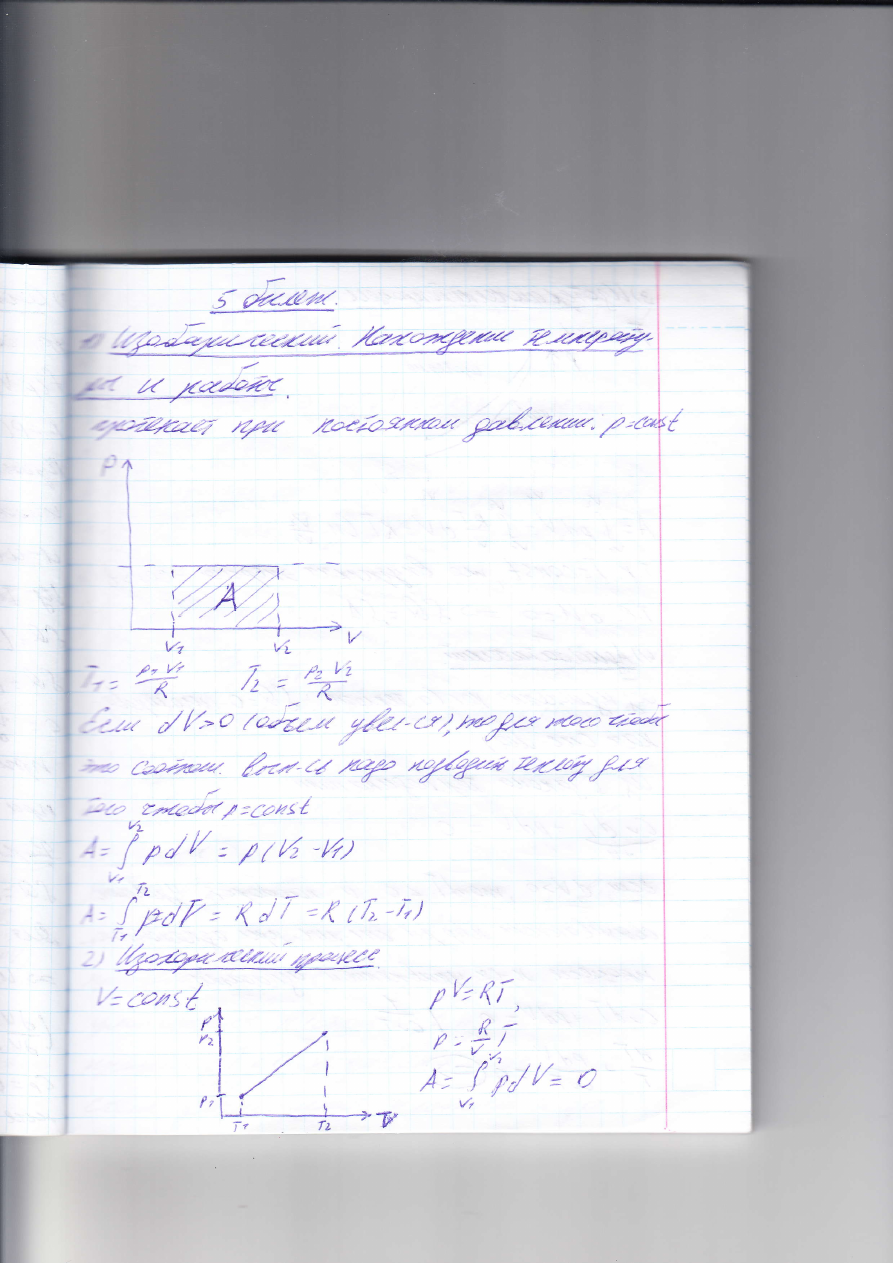 5 билет.
1) Изобарический. Нахождение температу-
ры и работы.
протекает при постоянном давлении. p=const
P
A
V1 V2 V
T1 = p1 V1 / R T2 = p2 V2 / R
Если dV>0 (объем увел-ся), то для того чтобы
это соотнош. вып-сь надо подводить теплоту для
того чтобы p=const
A = ∫_{V1}^{V2} p dV = p (V2 - V1)
A = ∫_{T1}^{T2} p dV = R dT = R (T2 - T1)
2) Изохорический процесс.
V=const
pV=RT,
P
p2
p = R/V T
A = ∫_{V1}^{V2} p dV = 0
p1
T1 T2